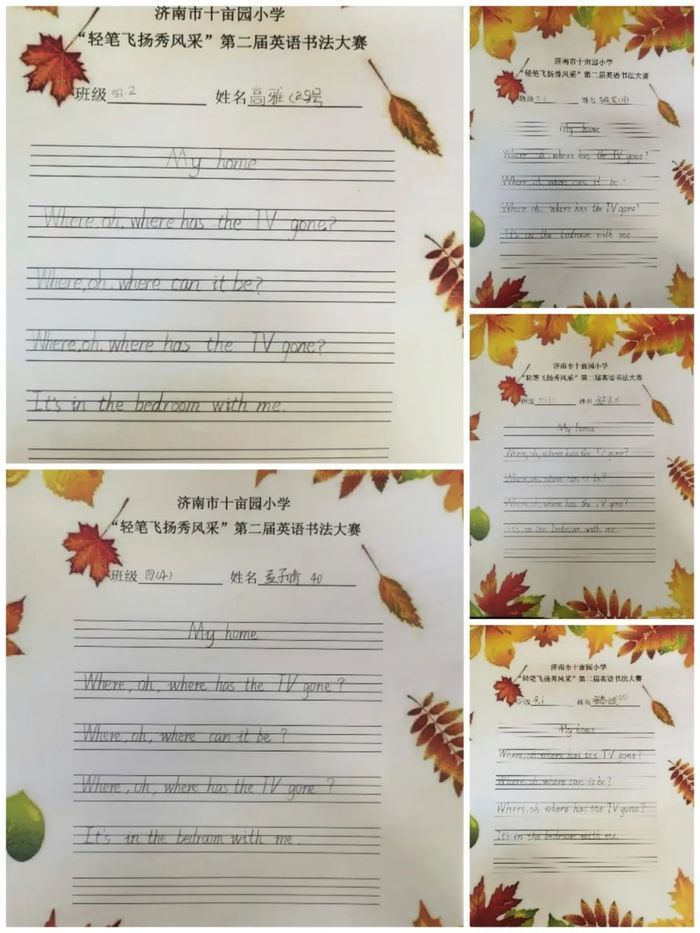 济南市十亩园小学
“轻笔飞扬秀风采”第二届英语书法大赛
班级 四.2 姓名 高雅(25号
My home
Where, oh, where has the TV gone?
Where, oh, where can it be?
Where, oh, where has the TV gone?
It's in the bedroom with me.
济南市十亩园小学
“轻笔飞扬秀风采”第二届英语书法大赛
班级 四(4) 姓名 孟子晴 40
My home
Where, oh, where has the TV gone?
Where, oh, where can it be?
Where, oh, where has the TV gone?
It's in the bedroom with me.
济南市十亩园小学
“轻笔飞扬秀风采”第二届英语书法大赛
班级 姓名
My home
Where oh, where has the TV gone?
Where, oh, where can it be?
Where oh, where has the TV gone?
It's in the bedroom with me
济南市十亩园小学
“轻笔飞扬秀风采”第二届英语书法大赛
班级 姓名
My home
Where, oh, where has the TV gone?
Where, oh, where can it be?
Where, oh, where has the TV gone?
It's in the bedroom with me.
济南市十亩园小学
“轻笔飞扬秀风采”第二届英语书法大赛
班级 姓名
My home
Where, oh, where has the TV gone?
Where, oh, where can it be?
Where, oh, where has the TV gone?
It's in the bedroom with me.